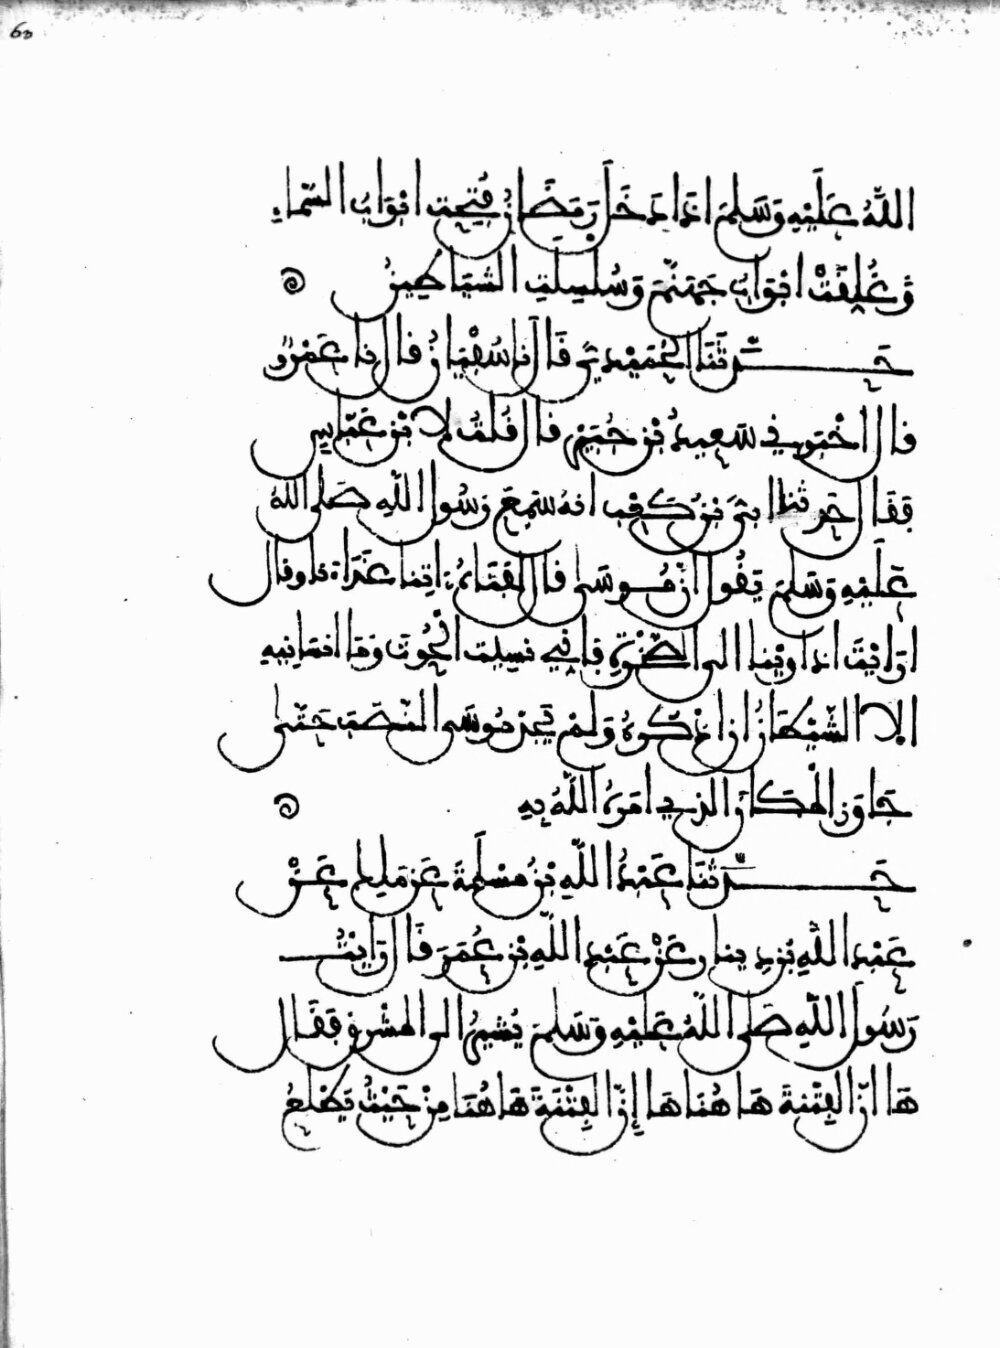 60
الله عَلَيْهِ وَسَلَّمَ اذَا دَخَلَ رَمَضَانُ فُتِحَت ابْوَابُ السَّمَاءِ
وَغُلِّقَتْ ابْوَابُ جَهَنَّمَ وَسُلْسِلَتِ الشَّيَاطِينُ
حَدَّثَنَا الْحُمَيْدِيُّ قَالَ نا سُفْيَانُ قال نا عَمْرٌو
قال اخْبَرَنِي سَعِيدُ بْنُ جُبَيْرٍ قال قُلْتُ لابْنِ عَبَّاسٍ
فَقَالَ حَدثنا ابَيُّ بْنُ كَعْبٍ انهُ سَمِعَ رَسُولَ اللَّهِ صَلى اللهُ
عَلَيْهِ وَسَلَّمَ يَقُولُ انَّ مُوسَى قال لِفَتَاهُ ءاتِنا غَدَاءَنا قال
ارَايْتَ اذ اوَيْنا الى الصَّخْرَةِ فَانِّي نَسِيتُ الْحُوتَ وَمَا انسَانِيهِ
الا الشَّيْطَانُ ان اذْكُرَهُ وَلَمْ يَجِدْ مُوسَى النَّصَبَ حَتَّى
جَاوَزَ الْمَكَانَ الذي امَرَهُ اللَّهُ بِهِ
حَدَّثَنَا عَبْدُ اللَّهِ بْنُ مَسْلَمَةَ عَنْ مَالِكٍ عَنْ
عَبْدِ اللَّهِ بْنِ دِينارٍ عَنْ عَبْدِ اللَّهِ بْنِ عُمَرَ قَالَ رَايْتُ
رَسُولَ اللَّهِ صَلى اللَّهُ عَلَيْهِ وَسَلَّمَ يُشِيرُ الى الْمَشْرِقِ فَقَالَ
هَا انَّ الْفِتْنَةَ هَاهُنَا هَا إِنَّ الْفِتْنَةَ هَاهُنَا مِنْ حَيْثُ يَطْلُعُ